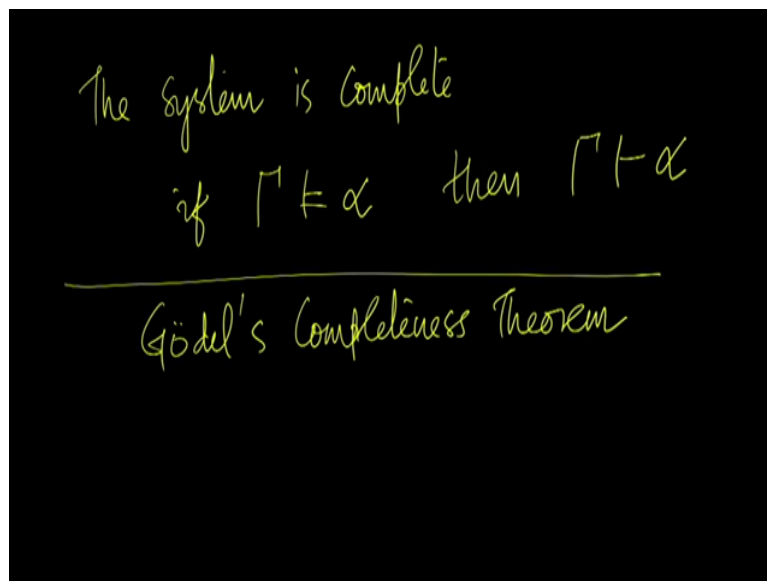 The system is complete
if Γ ⊨ α then Γ ⊢ α
Gödel's Completeness Theorem